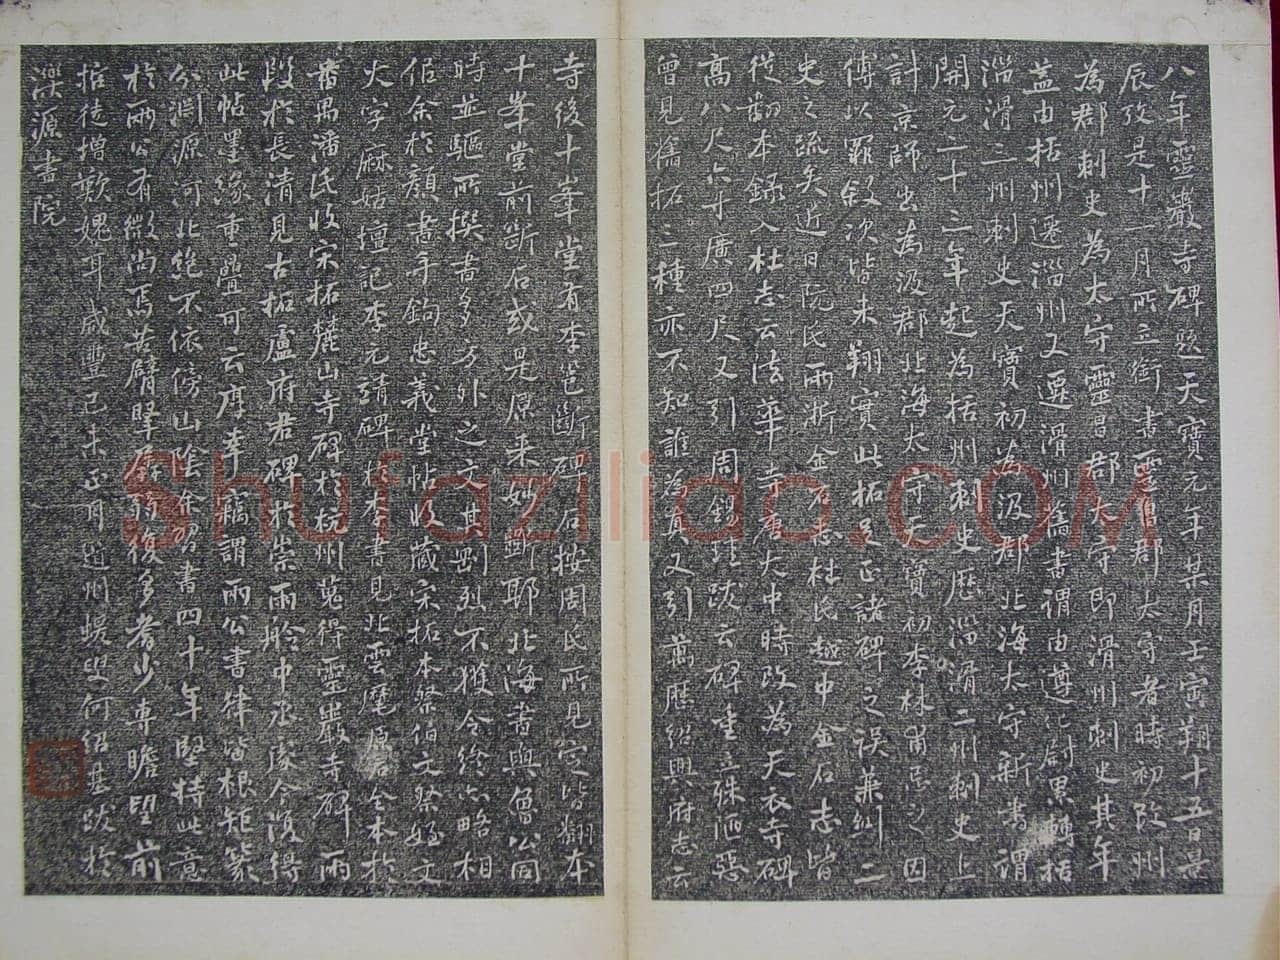 八年靈巖寺碑題天寶元年某月壬寅朔十五日是
辰攷是十一月所立銜書靈昌郡太守者時初改州
為郡刺史為太守靈昌郡太守即滑州刺史其年
蓋由括州遷淄州又遷滑州舊書謂由遵化尉累轉括
淄滑三州刺史天寶初為汲郡北海太守新書謂
開元二十三年起為括州刺史歷淄滑二州刺史上
計京師出為汲郡北海太守天寶初李林甫忌之因
傅以罪敘次皆未翔實此拓足正諸碑之誤兼糾二
史之疏矣近日阮氏兩浙金石志杜氏越中金石志皆
從翻本錄入杜志云法華寺唐大中時改為天衣寺碑
高八尺六寸廣四尺又引周錫珪跋云碑重立殊陋惡
曾見舊拓三種亦不知誰為真又引萬歷紹興府志云
寺後十峯堂有李邕斷碑石按周氏所見定皆翻本
十峯堂前斷石或是原來妙斷耶北海書與魯公同
時並驅所撰書多方外之文其剛烈不獲令終亦略相
似余於顏書手鉤忠義堂帖收藏宋拓本祭伯文祭姪文
大字麻姑壇記李元靖碑於李書見北雲麾原石全本於
番禺潘氏收宋拓麓山寺碑於杭州蒐得靈巖寺碑兩
段於長清見古拓盧府君碑於崇雨舲中丞家今復得
此帖墨緣重疊可云厚幸竊謂兩公書律皆根矩篆
分淵源河北絕不依傍山陰余習書四十年堅持此意
於兩公有微尚焉苦臂腕孱弱復多耆少專瞻望前
哲徒增歎媿耳咸豐己未正月道州蝯叟何紹基跋於
濼源書院
Shufaziliao.COM